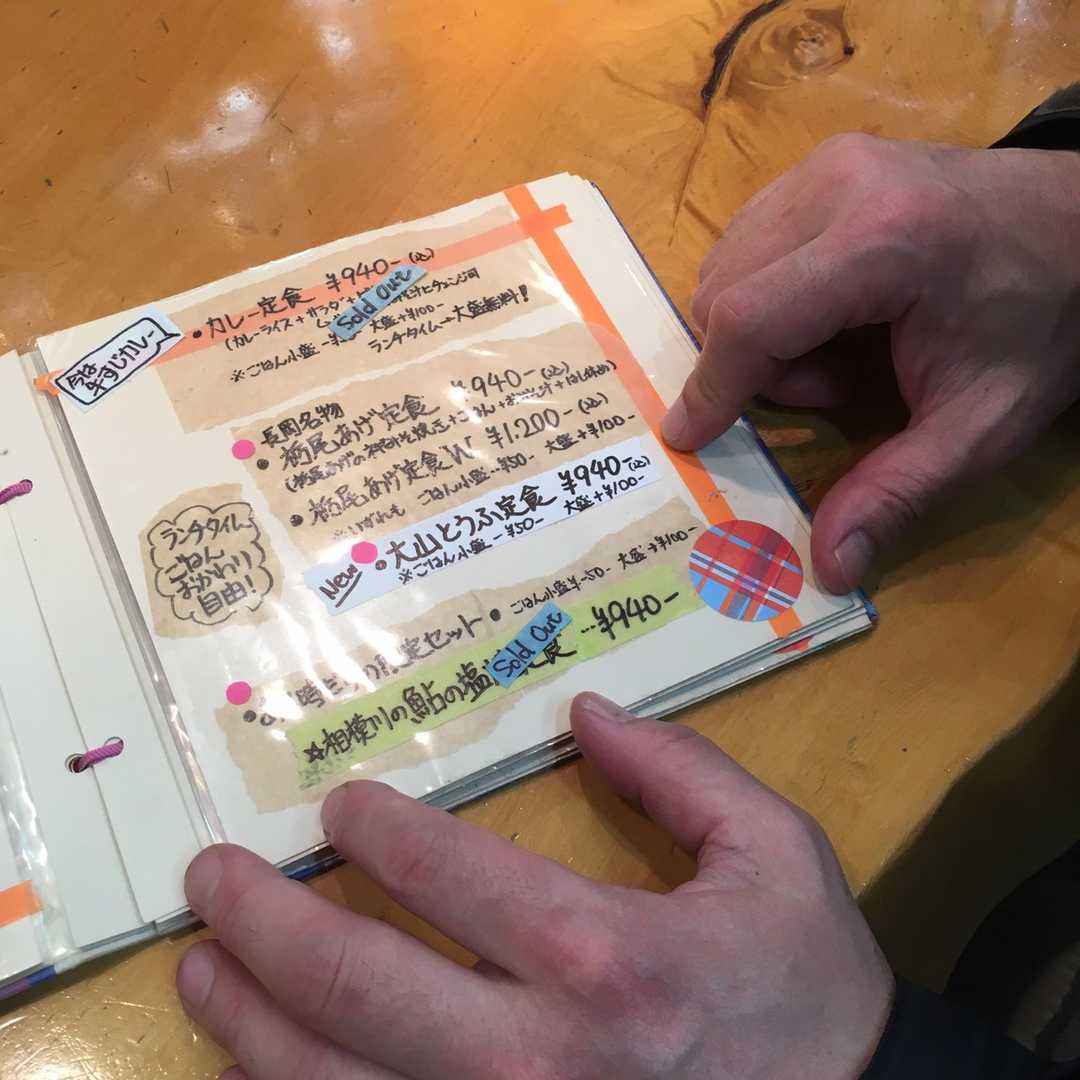 今は
牛すじカレー
・カレー定食 ¥940-(込)
Sold Out
(カレーライス+サラダ+
※ごはん小盛-¥ 大盛+¥100-
ランチタイム→大盛無料!
長岡名物
・栃尾あげ定食 ¥940-(込)
・栃尾あげ定食W ¥1.200-(込)
※いずれも ごはん小盛-¥50- 大盛+¥100-
New
・大山とうふ定食 ¥940-(込)
※ごはん小盛-¥50- 大盛+¥100-
ランチタイム
ごはん
おかわり
自由!
定セット・ ごはん小盛¥-50- 大盛+¥100-
Sold Out
☆相模川の鮎の塩 定食 …¥940-